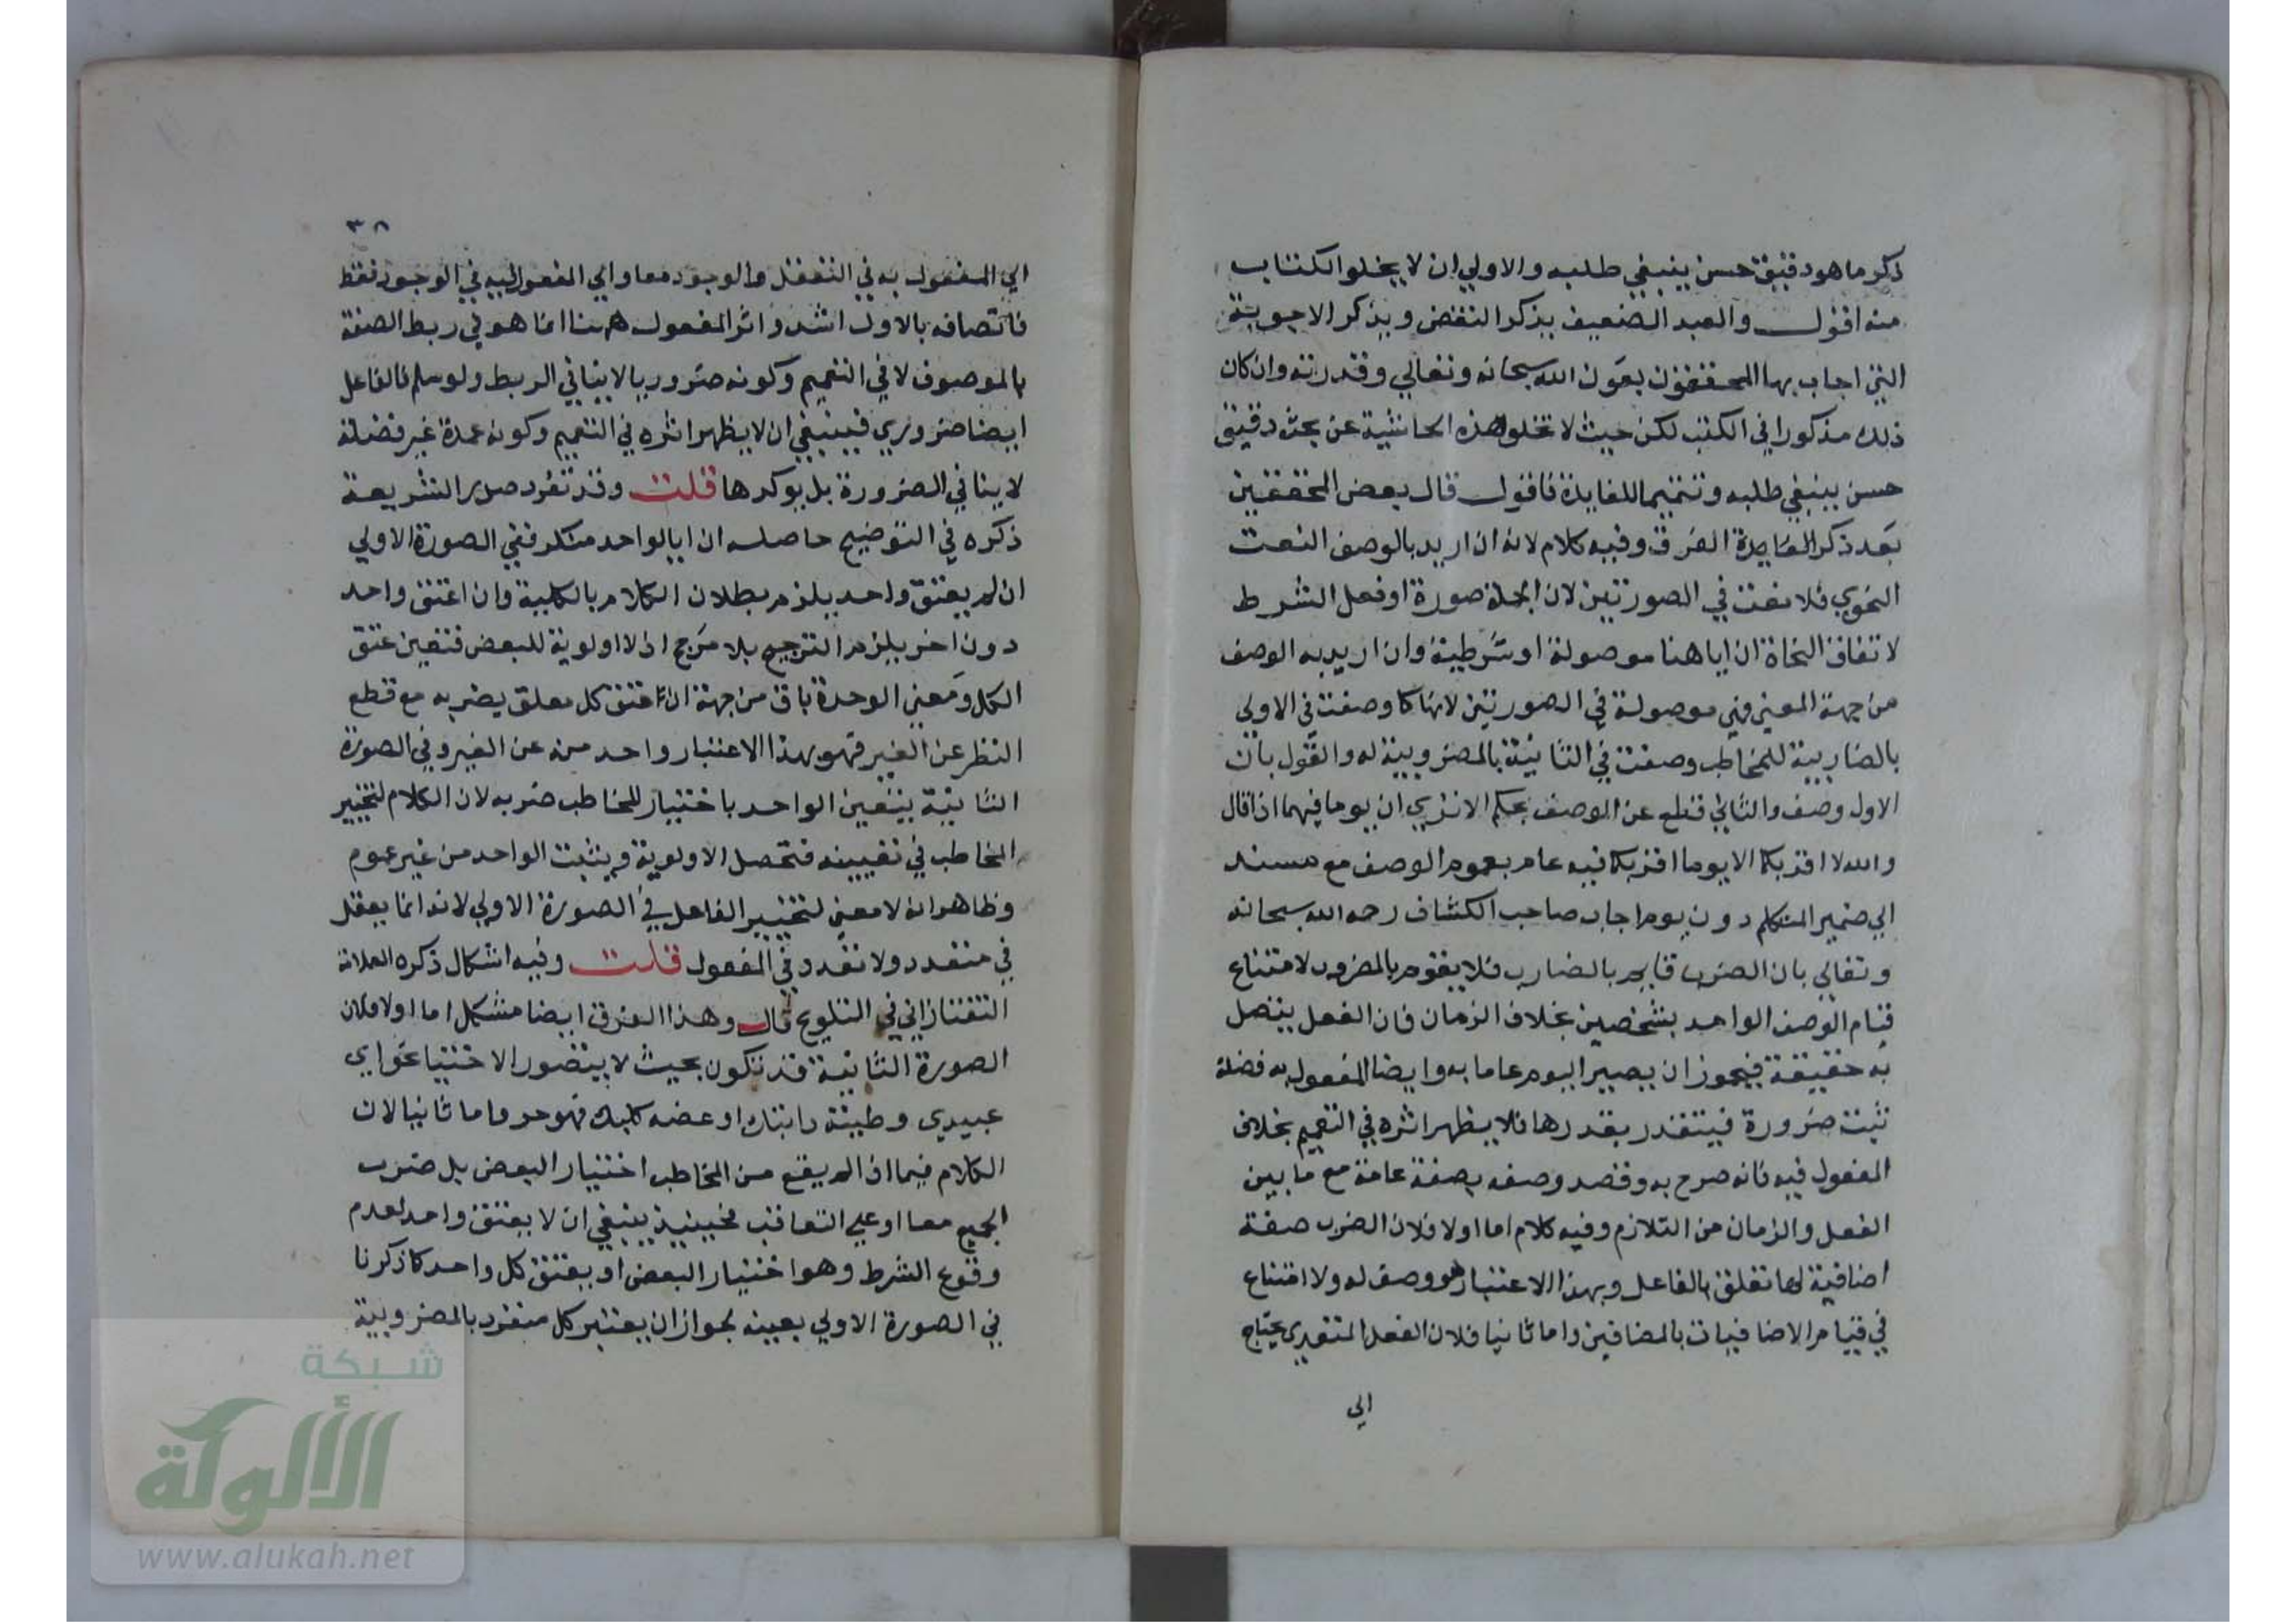 ذكر ما هو دقيق حسن ينبغي طلبه والاولي ان لا يخلو الكتاب
منه اقول والعبد الضعيف يذكر النقض ويذكر الاجوبة
التي اجاب بها المحققون بعون الله سبحانه وتعالي وقدرته وان كان
ذلك مذكورا في الكتب لكن حيث لا تخلو هذه الحاشية عن بحث دقيق
حسن ينبغي طلبه وتتميما للفايدة فاقول قال بعض المحققين
بعد ذكر الفرق وفيه كلام لانه ان اريد بالوصف النعت
النحوي فلا نعت في الصورتين لان الجملة صورة او فعل الشرط
لاتفاق النحاة ان ايا هنا موصولة او شرطية وان اريد به الوصف
من جهة المعني فهي موصولة في الصورتين لانها كما وصفت في الاولي
بالضاربية للمخاطب وصفت في الثانية بالمضروبية له والقول بان
الاول وصف والثاني قطع عن الوصف بحكم الا تري ان يوما فيهما اذا قال
والله لا اقربكما الا يوما اقربكما فيه عام بعموم الوصف مع مسند
الي ضمير المتكلم دون يوم اجاب صاحب الكشاف رحمه الله سبحانه
وتعالي بان الضرب قايم بالضارب فلا يقوم بالمضروب لامتناع
قيام الوصف الواحد بشخصين بخلاف الزمان فان الفعل يتصل
به حقيقة فيجوز ان يصير اليوم عاما به وايضا المفعول به فضلة
تثبت ضرورة فيتقدر بقدرها فلا يظهر اثره في التعميم بخلاف
المفعول فيه فانه صرح به وقصد وصفه بصفة عامة مع ما بين
الفعل والزمان من التلازم وفيه كلام اما اولا فلان الضرب صفة
اضافية لها تعلق بالفاعل وبهذا الاعتبار هو وصف له ولا امتناع
في قيام الاضافيات بالمضافين واما ثانيا فلان الفعل المتعدي يحتاج
الي
٣٨
الي المفعول به في التعقل والوجود معا والي المفعول فيه في الوجود فقط
فاتصافه بالاول اشد واثر المفعول ههنا انما هو في ربط الصفة
بالموصوف لا في التعميم وكونه ضروريا لا ينافي الربط ولو سلم فالفاعل
ايضا ضروري فينبغي ان لا يظهر اثره في التعميم وكونه عمدة غير فضلة
لا ينافي الضرورة بل يوكدها قلت وقد تفرد صدر الشريعة
ذكره في التوضيح حاصله ان ايا لواحد منكر ففي الصورة الاولي
ان لم يعتق واحد يلزم بطلان الكلام بالكلية وان اعتق واحد
دون اخر يلزم الترجيح بلا مرجح اذ لا اولوية للبعض فتعين عتق
الكل ومعني الوحدة باق من جهة ان عتق كل معلق بضربه مع قطع
النظر عن الغير فهو بهذا الاعتبار واحد منه عن الغير وفي الصورة
الثانية يتعين الواحد باختيار للمخاطب ضربه لان الكلام لتخيير
المخاطب في تعيينه فتحصل الاولوية ويثبت الواحد من غير عموم
وظاهر انه لا معني لتخيير الفاعل في الصورة الاولي لانه انما يعقل
في متعدد ولا تعدد في المفعول قلت وفيه اشكال ذكره العلامة
التفتازاني في التلويح قال وهذا الفرق ايضا مشكل اما اولا فلان
الصورة الثانية قد تكون بحيث لا يتصور الاختيار نحو اي
عبيدي وطيته دابتك او عضه كلبك فهو حر واما ثانيا لان
الكلام فيما اذا لم يقع من المخاطب اختيار البعض بل ضرب
الجميع معا او علي التعاقب فحينيذ ينبغي ان لا يعتق واحد لعدم
وقوع الشرط وهو اختيار البعض او يعتق كل واحد كما ذكرنا
في الصورة الاولي بعينه لجواز ان يعتبر كل منفرد بالمضروبية
شبكة
الألوكة
www.alukah.net